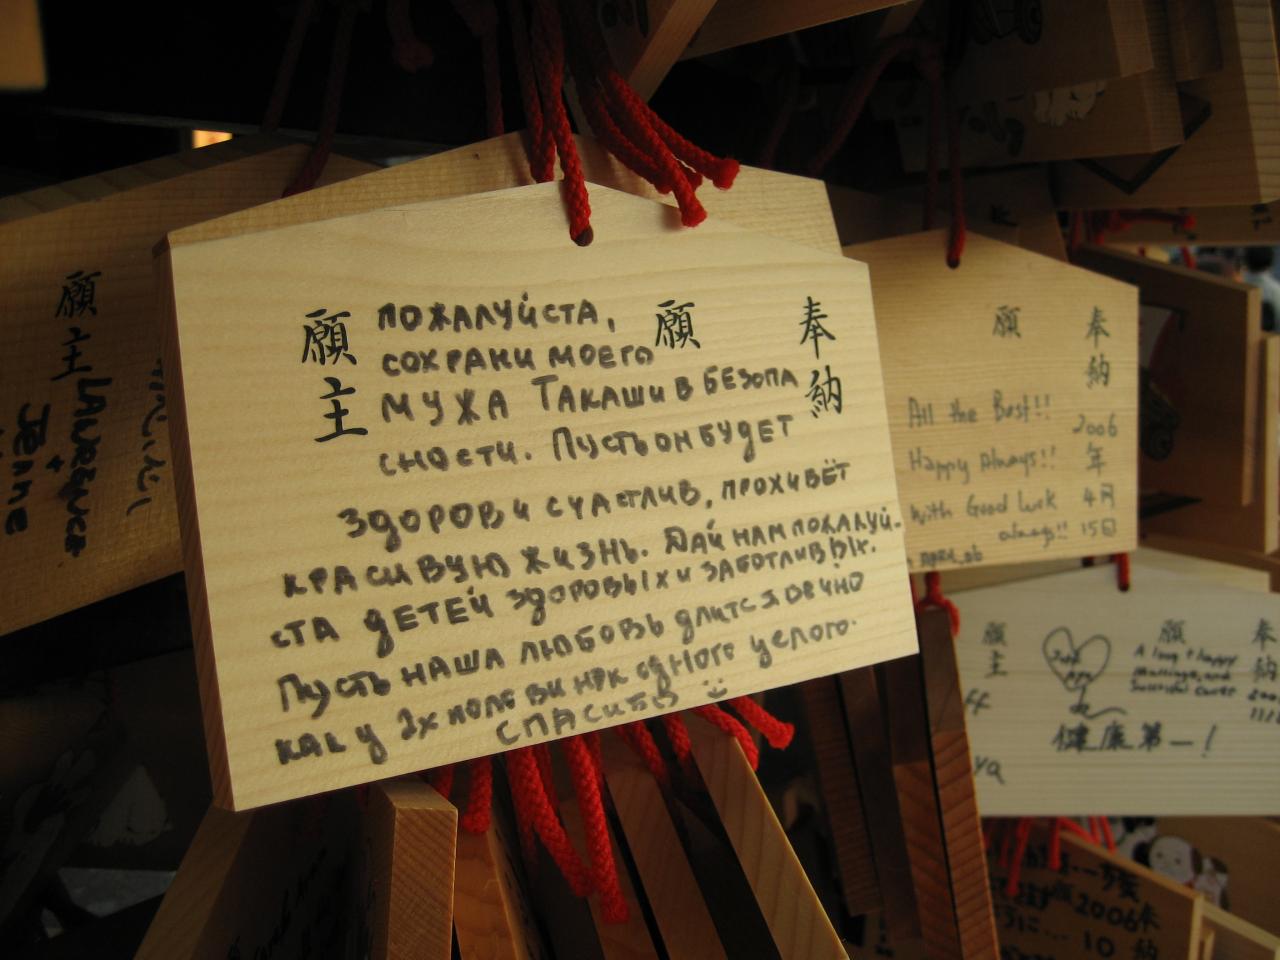 願主
願
奉納
ПОЖАЛУЙСТА,
СОХРАНИ МОЕГО
МУЖА ТАКАШИ В БЕЗОПА
СНОСТИ. ПУСТЬ ОН БУДЕТ
ЗДОРОВ И СЧАСТЛИВ, ПРОЖИВЁТ
КРАСИВУЮ ЖИЗНЬ. ДАЙ НАМ ПОЖАЛУЙ-
СТА ДЕТЕЙ ЗДОРОВЫХ И ЗАБОТЛИВЫХ.
ПУСТЬ НАША ЛЮБОВЬ ДЛИТСЯ ВЕЧНО
КАК У 2Х ПОЛОВИНОК ОДНОГО ЦЕЛОГО.
СПАСИБО
願主
Lawrence
+
Jenne
願
奉納
2006
年
4月
15日
All the Best!!
Happy Always!!
With Good luck
always!!
願主
願
奉納
A long & happy
Marriage, and
Successful Career
健康第一!
2006
10
奉納